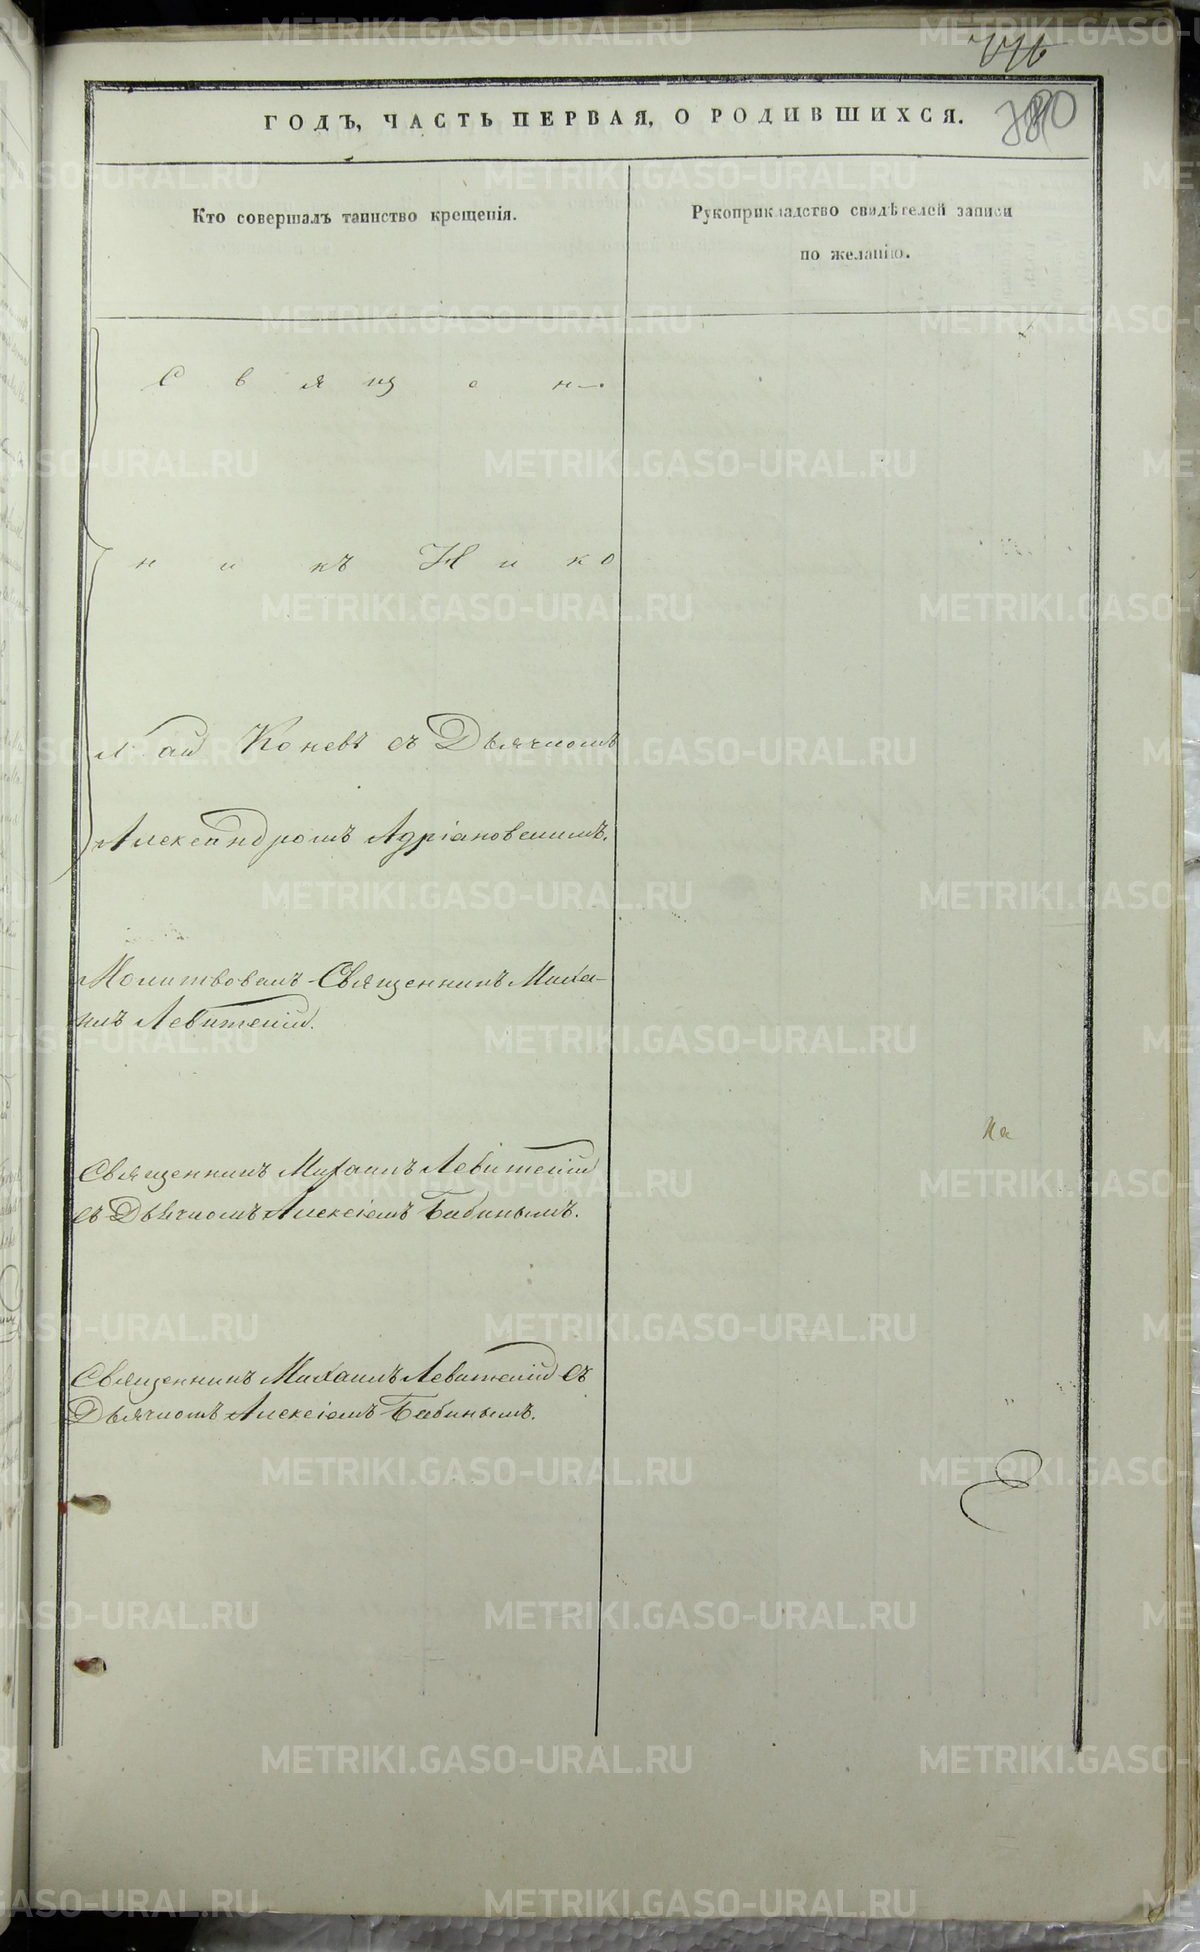 ГОДЪ, ЧАСТЬ ПЕРВАЯ, О РОДИВШИХСЯ.
Кто совершалъ таинство крещенія.
Рукоприкладство свидѣтелей записи
по желанію.
Священ-
никъ Нико
лай Коневъ съ Дьячкомъ
Александромъ Адріановскимъ.
Молитвовалъ Священникъ Миха-
илъ Левитскій.
Священникъ Михаилъ Левитскій
съ Дьячкомъ Алексіемъ Бабинымъ.
Священникъ Михаилъ Левитскій съ
Дьячкомъ Алексіемъ Бабинымъ.
METRIKI.GASO-URAL.RU